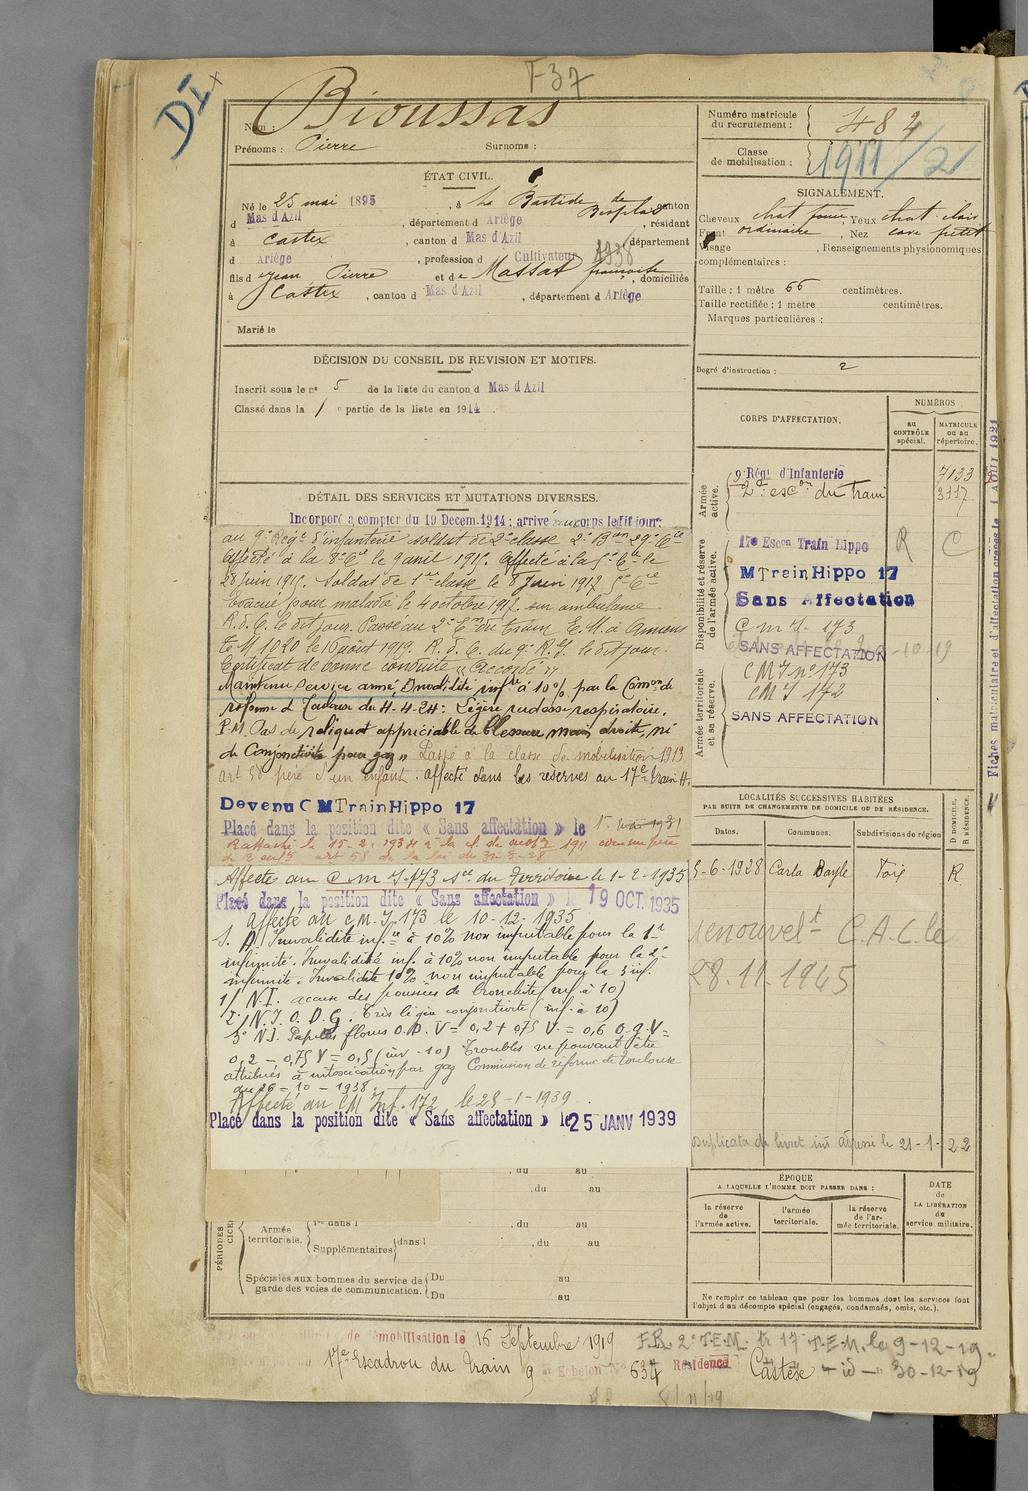 F37
DI x
Nom : Bioussas
Prénoms : Pierre Surnoms :
Numéro matricule du recrutement : 484
Classe de mobilisation : 1911/2
ÉTAT CIVIL.
Né le 25 mai 1895, à La Bastide de Besplas canton
d Mas d'Azil, département d Ariège, résidant
à Castex, canton d Mas d'Azil département
d Ariège, profession d Cultivateur 1936
fils d Jean Pierre et de Massat françoise, domiciliés
à Castex, canton d Mas d'Azil, département d Ariège
Marié le
SIGNALEMENT.
Cheveux chat foncé, Yeux chat. clair
Front ordinaire, Nez cave petit
Visage , Renseignements physionomiques
complémentaires :
Taille : 1 mètre 66 centimètres.
Taille rectifiée : 1 mètre centimètres.
Marques particulières :
Degré d'instruction : 2
DÉCISION DU CONSEIL DE REVISION ET MOTIFS.
Inscrit sous le n° 5 de la liste du canton d Mas d'Azil
Classé dans la 1 e partie de la liste en 1914.
CORPS D'AFFECTATION.
NUMÉROS
au CONTRÔLE spécial.
MATRICULE ou au répertoire.
Armée active.
9e Régt d'Infanterie 7133
2e escon du train 3117
Disponibilité et réserve de l'armée active.
17e Escon Train Hippo R C
M Train Hippo 17
Sans Affectation
C m I. 173
SANS AFFECTATION 10-19
Armée territoriale et sa réserve.
C M I n° 173
C M I 172
SANS AFFECTATION
DÉTAIL DES SERVICES ET MUTATIONS DIVERSES.
Incorporé à compter du 19 Decem. 1914 : arrivé au corps le dit jour.
au 9e Régt d'infanterie soldat de 2e classe 2e Bon 29e Cie
Affecté à la 8e Cie le 9 avril 1915. Affecté à la 5e Cie le
28 juin 1915. Soldat de 1re classe le 8 juin 1917 5e Cie
Evacué pour maladie le 4 octobre 1917 sur ambulance
R.d.C. le dit jour. Passé au 2e Eon du train E.M. à Amiens
T.M 1020 le 16 août 1919. R.d.C. du 9e R.I. le dit jour.
Certificat de bonne conduite "Accordé"
Maintenu Service armé, Invalidité infre à 10% par la Comon de
réforme d Toulouse du 4-4-24 : Légère rudesse respiratoire.
P.M. Pas de reliquat appréciable de blessure main droite, ni
de Conjonctivite pour gaz" Passé à la classe de mobilisation 1913
art 58 père d'un enfant. affecté dans les réserves au 17e train H.
Devenu C M Train Hippo 17
Placé dans la position dite « Sans affectation » le 1r Mai 1931
Rattaché le 15-2-1934 à la cl. de mobon 1911 comme père
de 2 enfts art 58 de la loi du 31-3-28
Affecté au C M I. 173 Son du Territoire le 1-2-1935
Placé dans la position dite « Sans affectation » le 19 OCT. 1935
affecté au C M. I. 173 le 10-12-1935
S. A. Invalidité infre à 10% non imputable pour la 1re
infirmité. Invalidité inf. à 10% non imputable pour la 2e
infirmité. Invalidité 10% non imputable pour la 3 inf.
1/ N.I. accuse des poussées de bronchite (inf à 10)
2/ N.I. O.D.G. Très légère conjonctivite (inf. à 10)
3° N.I. Papilles floues O.D. V = 0,2 + 0,75 V. = 0,6 O.G. V =
0,2 – 0,75 V = 0,5 (inv. 10) Troubles ne pouvant être
attribués à intoxication par gaz Commission de réforme de Toulouse
du 26-10-1938.
Affecté au CM Inf. 172, le 25-1-1939.
Placé dans la position dite « Sans affectation » le 25 JANV 1939
Fiches matriculaire et d'affectation créées le 1 AOUT 1921
LOCALITÉS SUCCESSIVES HABITÉES
PAR SUITE DE CHANGEMENTS DE DOMICILE OU DE RÉSIDENCE.
Dates. Communes. Subdivisions de région
D DOMICILE. R RÉSIDENCE.
5-6-1928 Carla Bayle Foix R
Renouvelt C.A.C. le
28.11.1945
Duplicata du livret ind adressé le 21-1-22
ÉPOQUE
A LAQUELLE L'HOMME DOIT PASSER DANS :
la réserve de l'armée active.
l'armée territoriale.
la réserve de l'armée territoriale.
DATE de LA LIBÉRATION du service militaire.
Ne remplir ce tableau que pour les hommes dont les services font l'objet d'un décompte spécial (engagés, condamnés, omis, etc.).
PÉRIODES
, du au
, du au
Armée territoriale. dans l , du au
Supplémentaires dans l , du au
Spéciales aux hommes du service de garde des voies de communication. Du au
Du au
de démobilisation le 16 Septembre 1919
17e Escadron du Train 9 e Echelon N° 634 Résidence Castex
F.R. 2e T.E.M. tr 17e T.E.M. le 9-12-19.
– id – 30-12-19